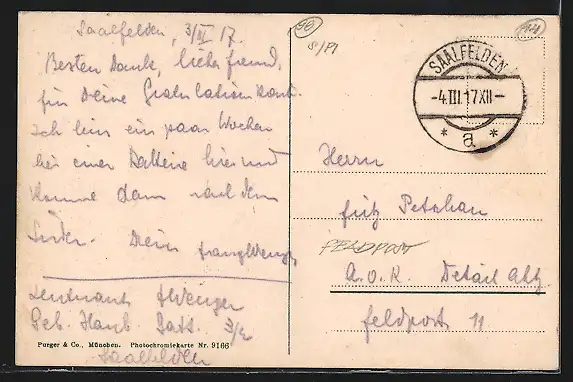 Saalfelden, 3/III 17.
Besten Dank, lieber Freund,
für Deine Gratulationskarte.
Ich bin ein paar Wochen
bei einer Batterie hier und
komme dann nach dem
Süden. Dein
Leutnant
Geb. Haub. Batt. 3/2
Saalfelden
Purger & Co., München. Photochromiekarte Nr. 9166
90
S/P1
SAALFELDEN
-4.III.17.XII-
* a *
Herrn
Fritz Petschau
FELDPOST
A.O.K. Detail Abt.
Feldpost 11